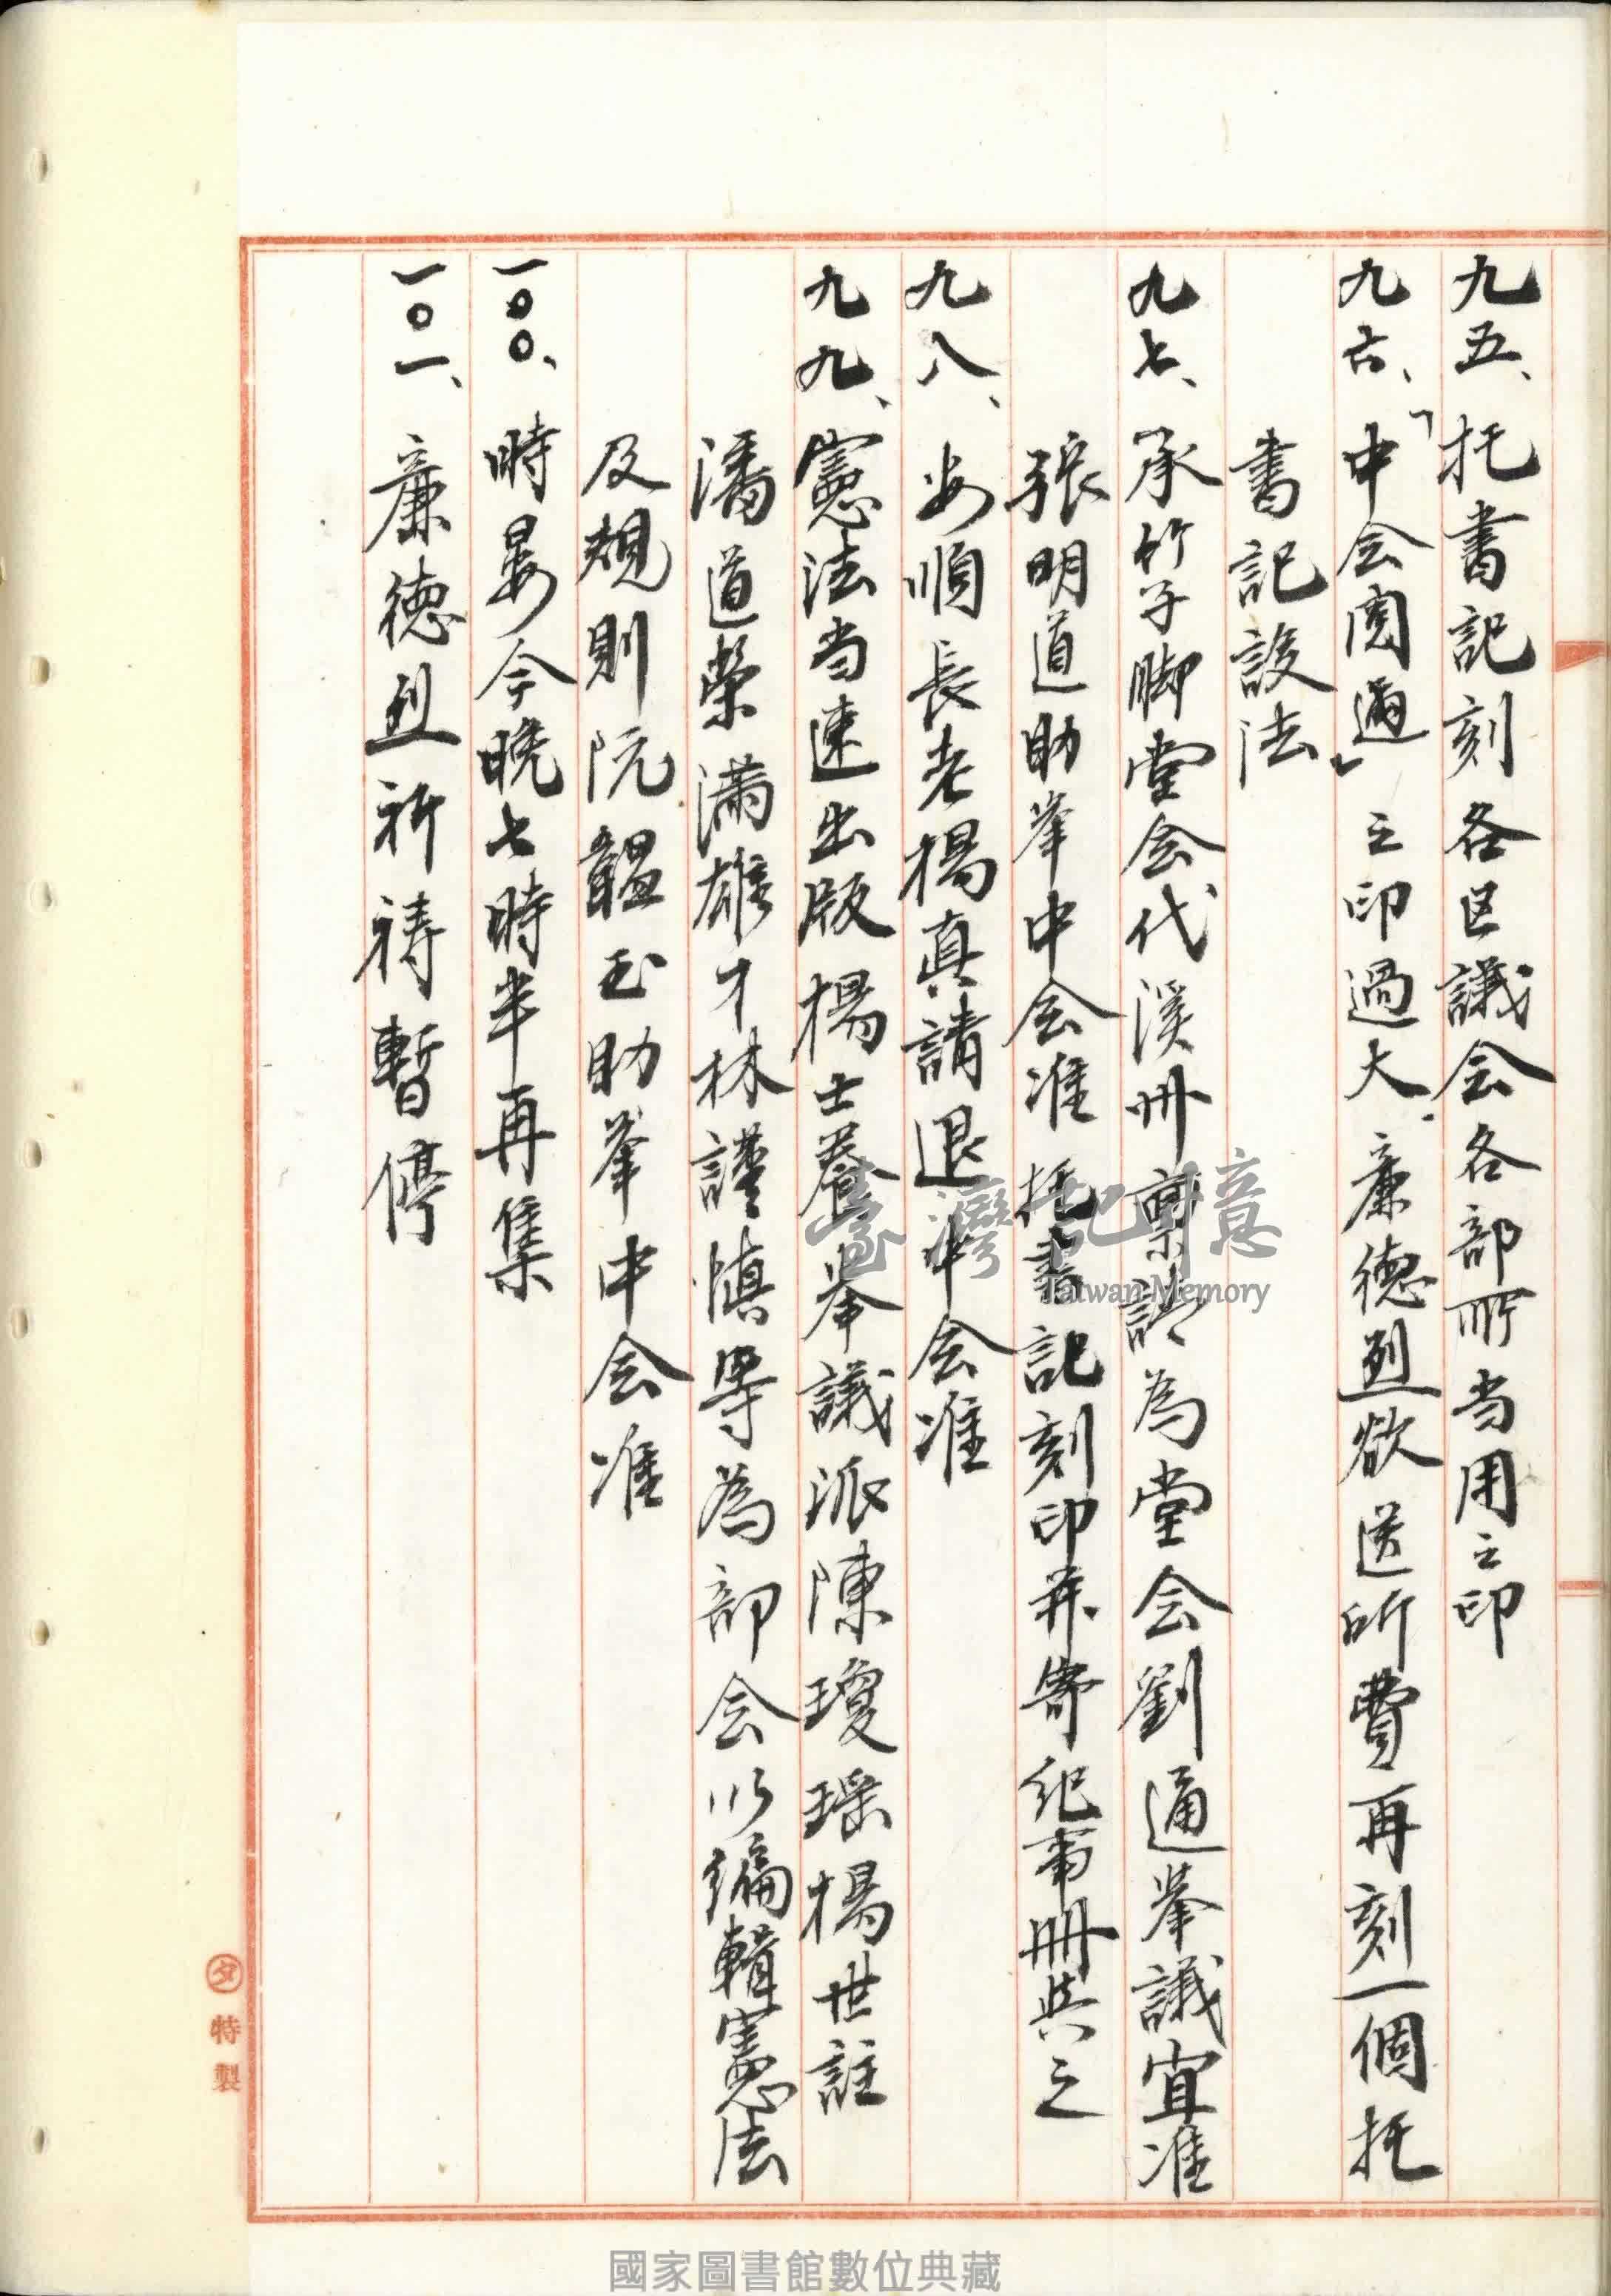 九五、托書記刻各区議会各部所当用之印
九六、「中会圓通」之印過大。廉德烈欲送所費再刻一個托
書記設法
九七、承竹子脚堂会代溪州稟請為堂会劉通挙議宜准
張明道助挙中会准托書記刻印并寄紀事冊與之
九八、安順長老楊真請退中会准
九九、憲法当速出版楊士養挙議派陳瓊瑶楊世註
潘道榮滿雄才林謹慎等為部会以編輯憲法
及規則阮韞玉助挙中会准
一〇〇、時晏今晚七時半再集
一〇一、廉德烈祈祷暫停
臺灣記憶
Taiwan Memory
タ特製
國家圖書館數位典藏